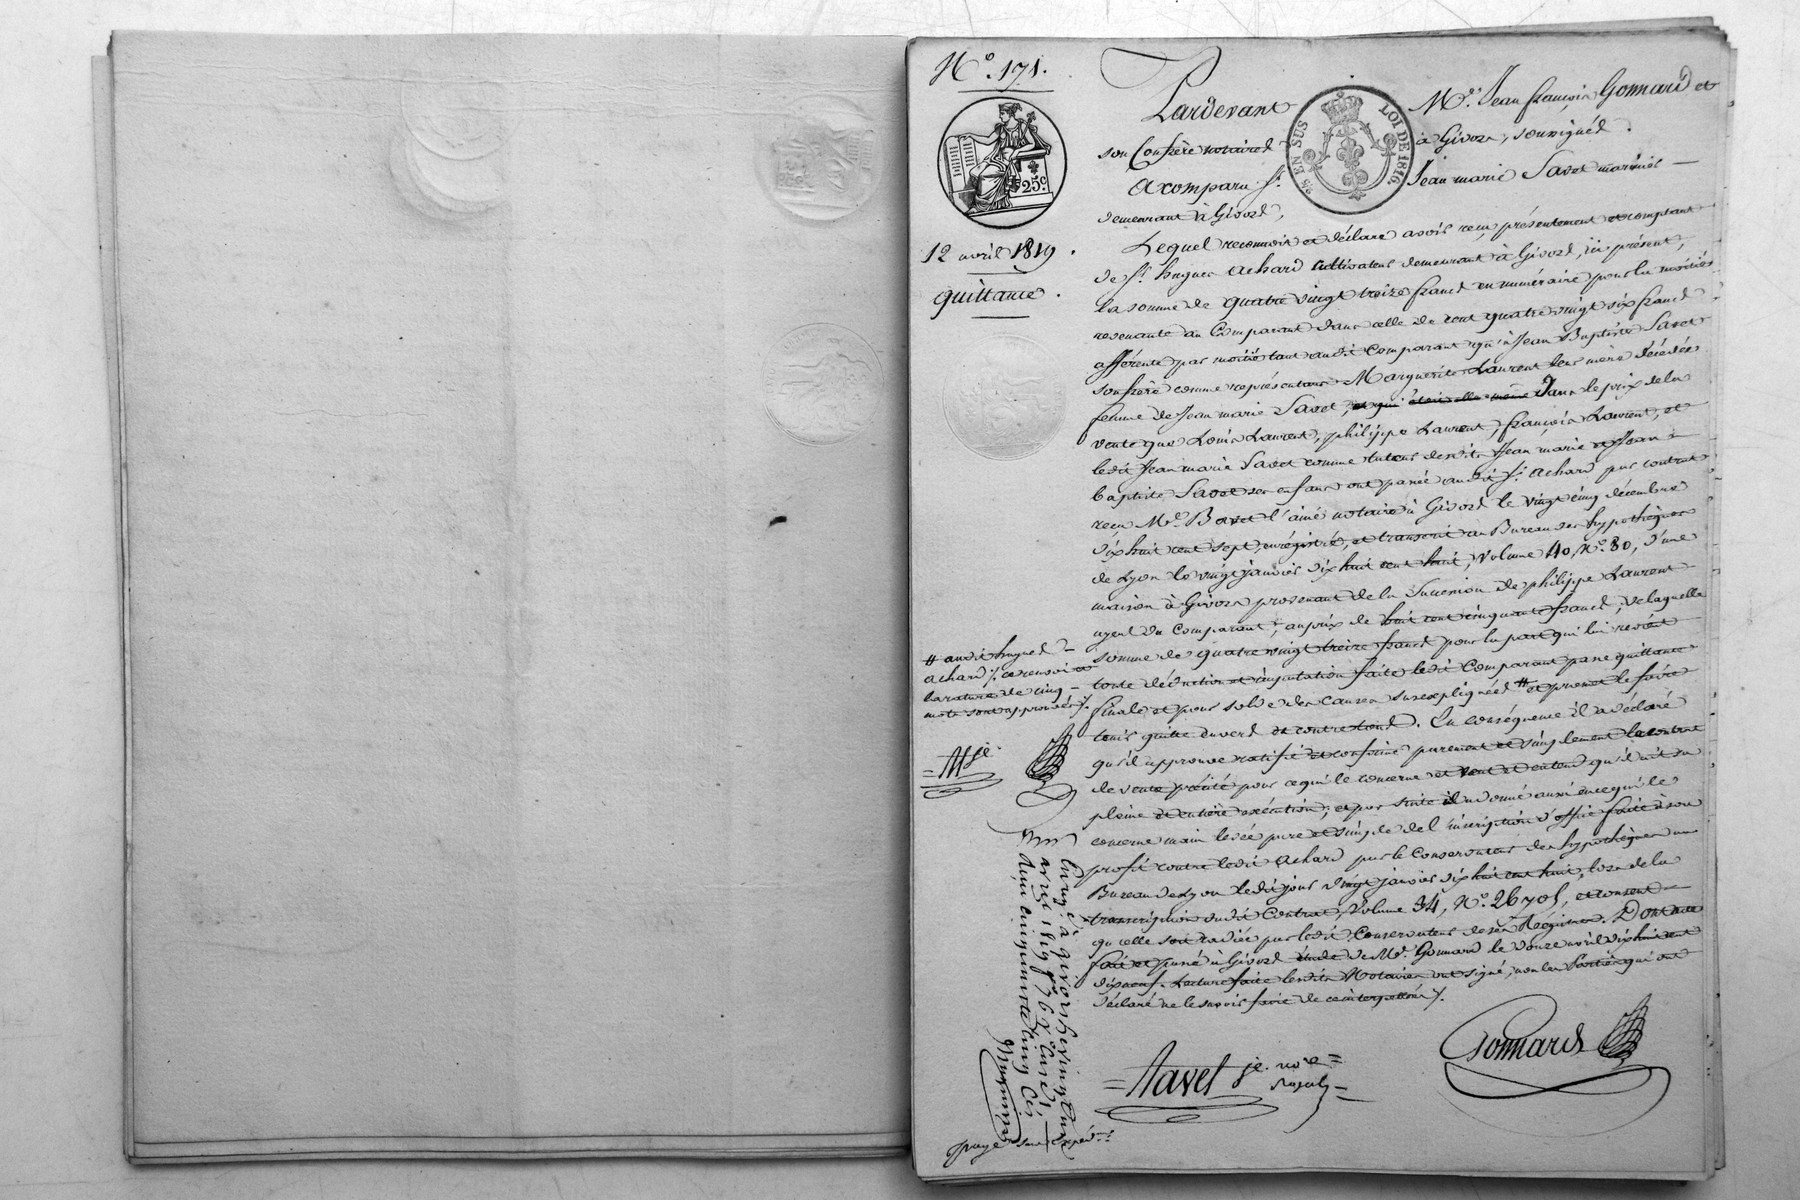 N.º 171.
25.c
12 avril 1819.
quittance.
EN SUS
LOI DE 1816
Pardevant M.e Jean françois Gonnard et
son Confrère notaires à Givors, soussignés.
A comparu S.r Jean marie Savet marinier
demeurant à Givors,
Lequel reconnoit et déclare avoir reçu présentement et comptant
de S.r hugues Achard cultivateur demeurant à Givors, ici présent,
la somme de quatre vingt treize francs en numéraire pour la moitié
revenante au Comparant dans celle de cent quatre vingt six francs
afférente par moitié tant audit Comparant qu'à Jean Baptiste Savet
son frère comme représentans Marguerite Laurent leur mère décédée
femme de Jean marie Savet, et qui étoit elle même Dans le prix de la
vente que Louis Laurent, philippe Laurent, françois Laurent, et
ledit Jean marie Savet comme tuteur desdits Jean marie et Jean
baptiste Savet ses enfans ont passée audit S.r Achard par contrat
reçu M.e Bavet l'ainé notaire à Givors le vingt cinq décembre
dix huit cent sept, enrégistré, et transcrit au Bureau des hypothèques
de Lyon le vingt janvier dix huit cent huit, volume 40, N.º 80, d'une
maison à Givors provenant de la Succession de philippe Laurent
ayeul du Comparant, au prix de huit cent cinquante francs; de laquelle
somme de quatre vingt treize francs pour la part qui lui revient
toute déduction et imputation faite ledit Comparant passe quittance
finale et pour solde des causes susexpliquées # et promet le faire
tenir quitte envers et contre tous. En conséquence il a déclaré
qu'il approuve ratifie et confirme purement et simplement le contrat
de vente précité pour ce qui le concerne et veut et entend qu'il ait sa
pleine et entière exécution; et par suite il a donné aussi en ce qui le
concerne main levée pure et simple de l'inscription d'office faite à son
profit contre ledit Achard par le Conservateur des hypothèques au
Bureau de Lyon ledit jour vingt janvier dix huit cent huit, lors de la
transcription dudit Contrat, volume 34, N.º 26701, et consent
qu'elle soit radiée par ledit Conservateur de ses Régistres. Dont acte
fait et passé à Givors étude de M.e Gonnard le douze avril dix huit cent
dix neuf. Lecture faite lesdits Notaires ont signé, non les Parties qui ont
déclaré ne le savoir faire de ce interpellées /.
# audit hugues
achard /. ce renvoi et
la rature de cinq
mots sont approuvés /.
Enrg.é à givors le vingt un
avril 1819 f.º 76
Gonnard